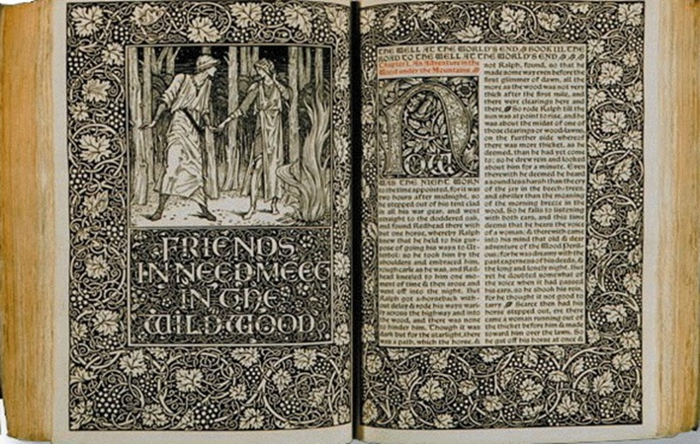 FRIENDS
IN NEED MEET
IN THE
WILD WOOD
THE WELL AT THE WORLD'S END BOOK III. THE
ROAD TO THE WELL AT THE WORLD'S END
Chapter I. An Adventure in the
Wood under the Mountains
NOW
WAS THE NIGHT WORN
to the time appointed, for it was
two hours after midnight, so
he stepped out of his tent clad
in all his war gear, and went
straight to the doddered oak,
and found Redhead there with
but one horse, whereby Ralph
knew that he held to his pur-
pose of going his ways to Ut-
terbol: so he took him by the
shoulders and embraced him,
rough carle as he was, and Red-
head kneeled to him one mo-
ment of time & then arose and
went off into the night. But
Ralph got a-horseback with-
out delay & rode his ways wari-
ly across the highway and into
the wood, and there was none
to hinder him. Though it was
dark but for the starlight, there
was a path, which the horse, &
not Ralph, found, so that he
made some way even before the
first glimmer of dawn, all the
more as the wood was not very
thick after the first mile, and
there were clearings here and
there. So rode Ralph till the
sun was at point to rise, and he
was about the midst of one of
those clearings or wood-lawns,
on the further side whereof
there was more thicket, as he
deemed, than he had yet come
to; so he drew rein and looked
about him for a minute. Even
therewith he deemed he heard
a sound less harsh than the cry
of the jay in the beech-trees,
and shriller than the moaning
of the morning breeze in the
wood. So he falls to listening
with both ears, and this time
deems that he hears the voice
of a woman: & therewith came
into his mind that old & dear
adventure of the Wood Peril-
ous; for he was dreamy with the
past eagerness of his deeds, &
the long and lonely night. But
yet he doubted somewhat of
the voice when it had passed
his ears, so he shook his rein,
for he thought it not good to
tarry. Scarce then had his
horse stepped out, ere there
came a woman running out of
the thicket before him & made
toward him over the lawn. So
he gat off his horse at once &